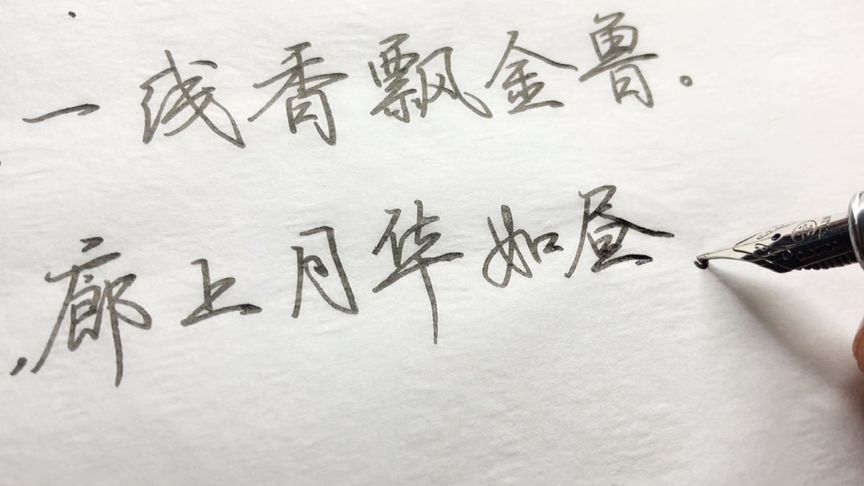 一线香飘金兽。
,廊上月华如昼